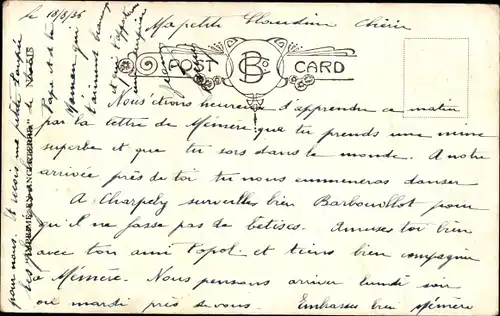 le 18/8/36
Ma petite Claudine Chérie
POST CARD
B
Nous étions heureux d'apprendre ce matin
par la lettre de Mémère que tu prends une mine
superbe et que tu sors dans le monde. A notre
arrivée près de toi tu nous emmeneras danser
A Charpely surveilles bien Barbouillot pour
qu'il ne fasse pas de bétises. Amuses toi bien
avec ton ami Popol et tiens bien compagnie
à Mémère. Nous pensons arriver lundi soir
ou mardi près de vous. Embrasses bien Mémère
pour nous. Et reçois ma petite Poupée
les
Papa et de ta
Maman qui
t'aiment